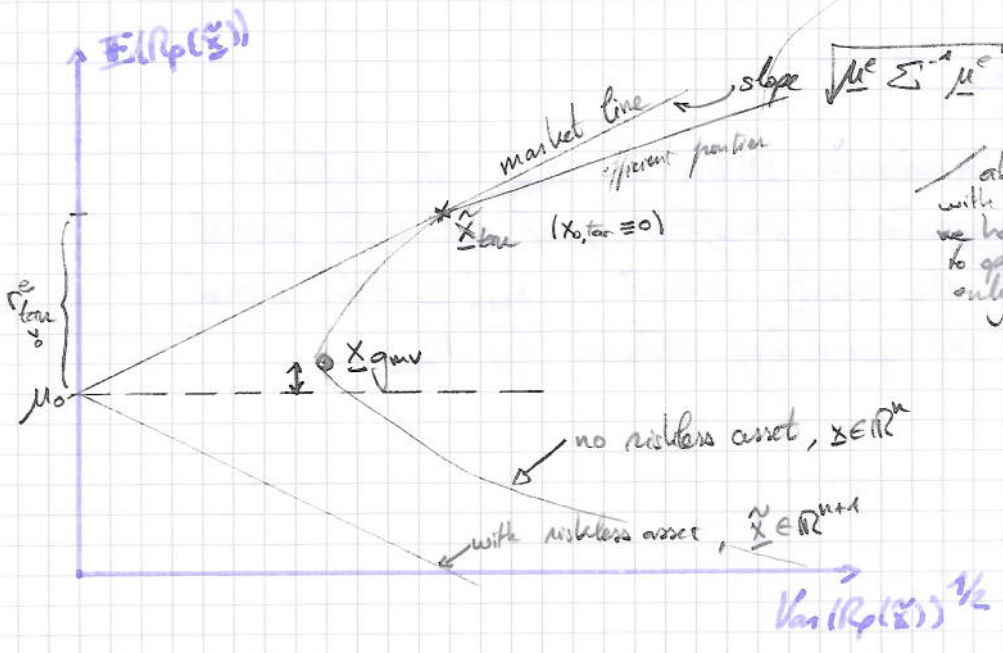 E(Rp(x̃))
slope √μᵉ Σ⁻¹ μᵉ
market line
efficient frontier
x̃ tan (x₀,tan ≡ 0)
with
rᵉ tan
x gmv
μ₀
no riskless asset, x ∈ ℝⁿ
with riskless asset, x̃ ∈ ℝⁿ⁺¹
Var(Rp(x̃))^1/2